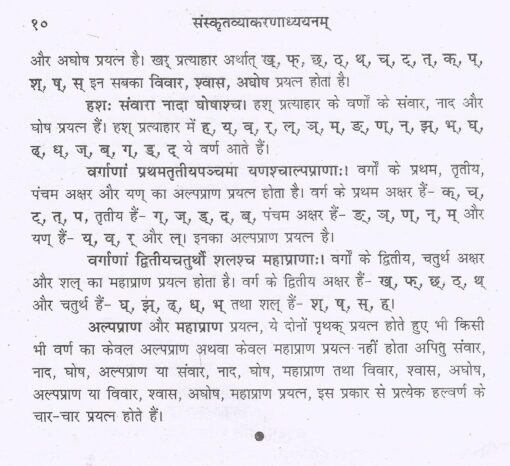 १० संस्कृतव्याकरणाध्ययनम्
और अघोष प्रयत्न है। खर् प्रत्याहार अर्थात् ख्, फ्, छ्, ठ्, थ्, च्, ट्, त्, क्, प्,
श्, ष्, स् इन सबका विवार, श्वास, अघोष प्रयत्न होता है।
हशः संवारा नादा घोषाश्च। हश् प्रत्याहार के वर्णों के संवार, नाद और
घोष प्रयत्न हैं। हश् प्रत्याहार में ह्, य्, व्, र्, ल्, ञ्, म्, ङ्, ण्, न्, झ्, भ्, घ्,
ढ्, ध्, ज्, ब्, ग्, ड्, द् ये वर्ण आते हैं।
वर्गाणां प्रथमतृतीयपञ्चमा यणश्चाल्पप्राणाः। वर्गों के प्रथम, तृतीय,
पंचम अक्षर और यण् का अल्पप्राण प्रयत्न होता है। वर्ग के प्रथम अक्षर हैं- क्, च्,
ट्, त्, प्, तृतीय हैं- ग्, ज्, ड्, द्, ब्, पंचम अक्षर हैं- ङ्, ञ्, ण्, न्, म् और
यण् हैं- य्, व्, र् और ल्। इनका अल्पप्राण प्रयत्न है।
वर्गाणां द्वितीयचतुर्थौ शलश्च महाप्राणाः। वर्गों के द्वितीय, चतुर्थ अक्षर
और शल् का महाप्राण प्रयत्न होता है। वर्ग के द्वितीय अक्षर हैं- ख्, फ्, छ्, ठ्, थ्
और चतुर्थ हैं- घ्, झ्, ढ्, ध्, भ् तथा शल् हैं- श्, ष्, स्, ह्।
अल्पप्राण और महाप्राण प्रयत्न, ये दोनों पृथक् प्रयत्न होते हुए भी किसी
भी वर्ण का केवल अल्पप्राण अथवा केवल महाप्राण प्रयत्न नहीं होता अपितु संवार,
नाद, घोष, अल्पप्राण या संवार, नाद, घोष, महाप्राण तथा विवार, श्वास, अघोष,
अल्पप्राण या विवार, श्वास, अघोष, महाप्राण प्रयत्न, इस प्रकार से प्रत्येक हल्वर्ण के
चार-चार प्रयत्न होते हैं।